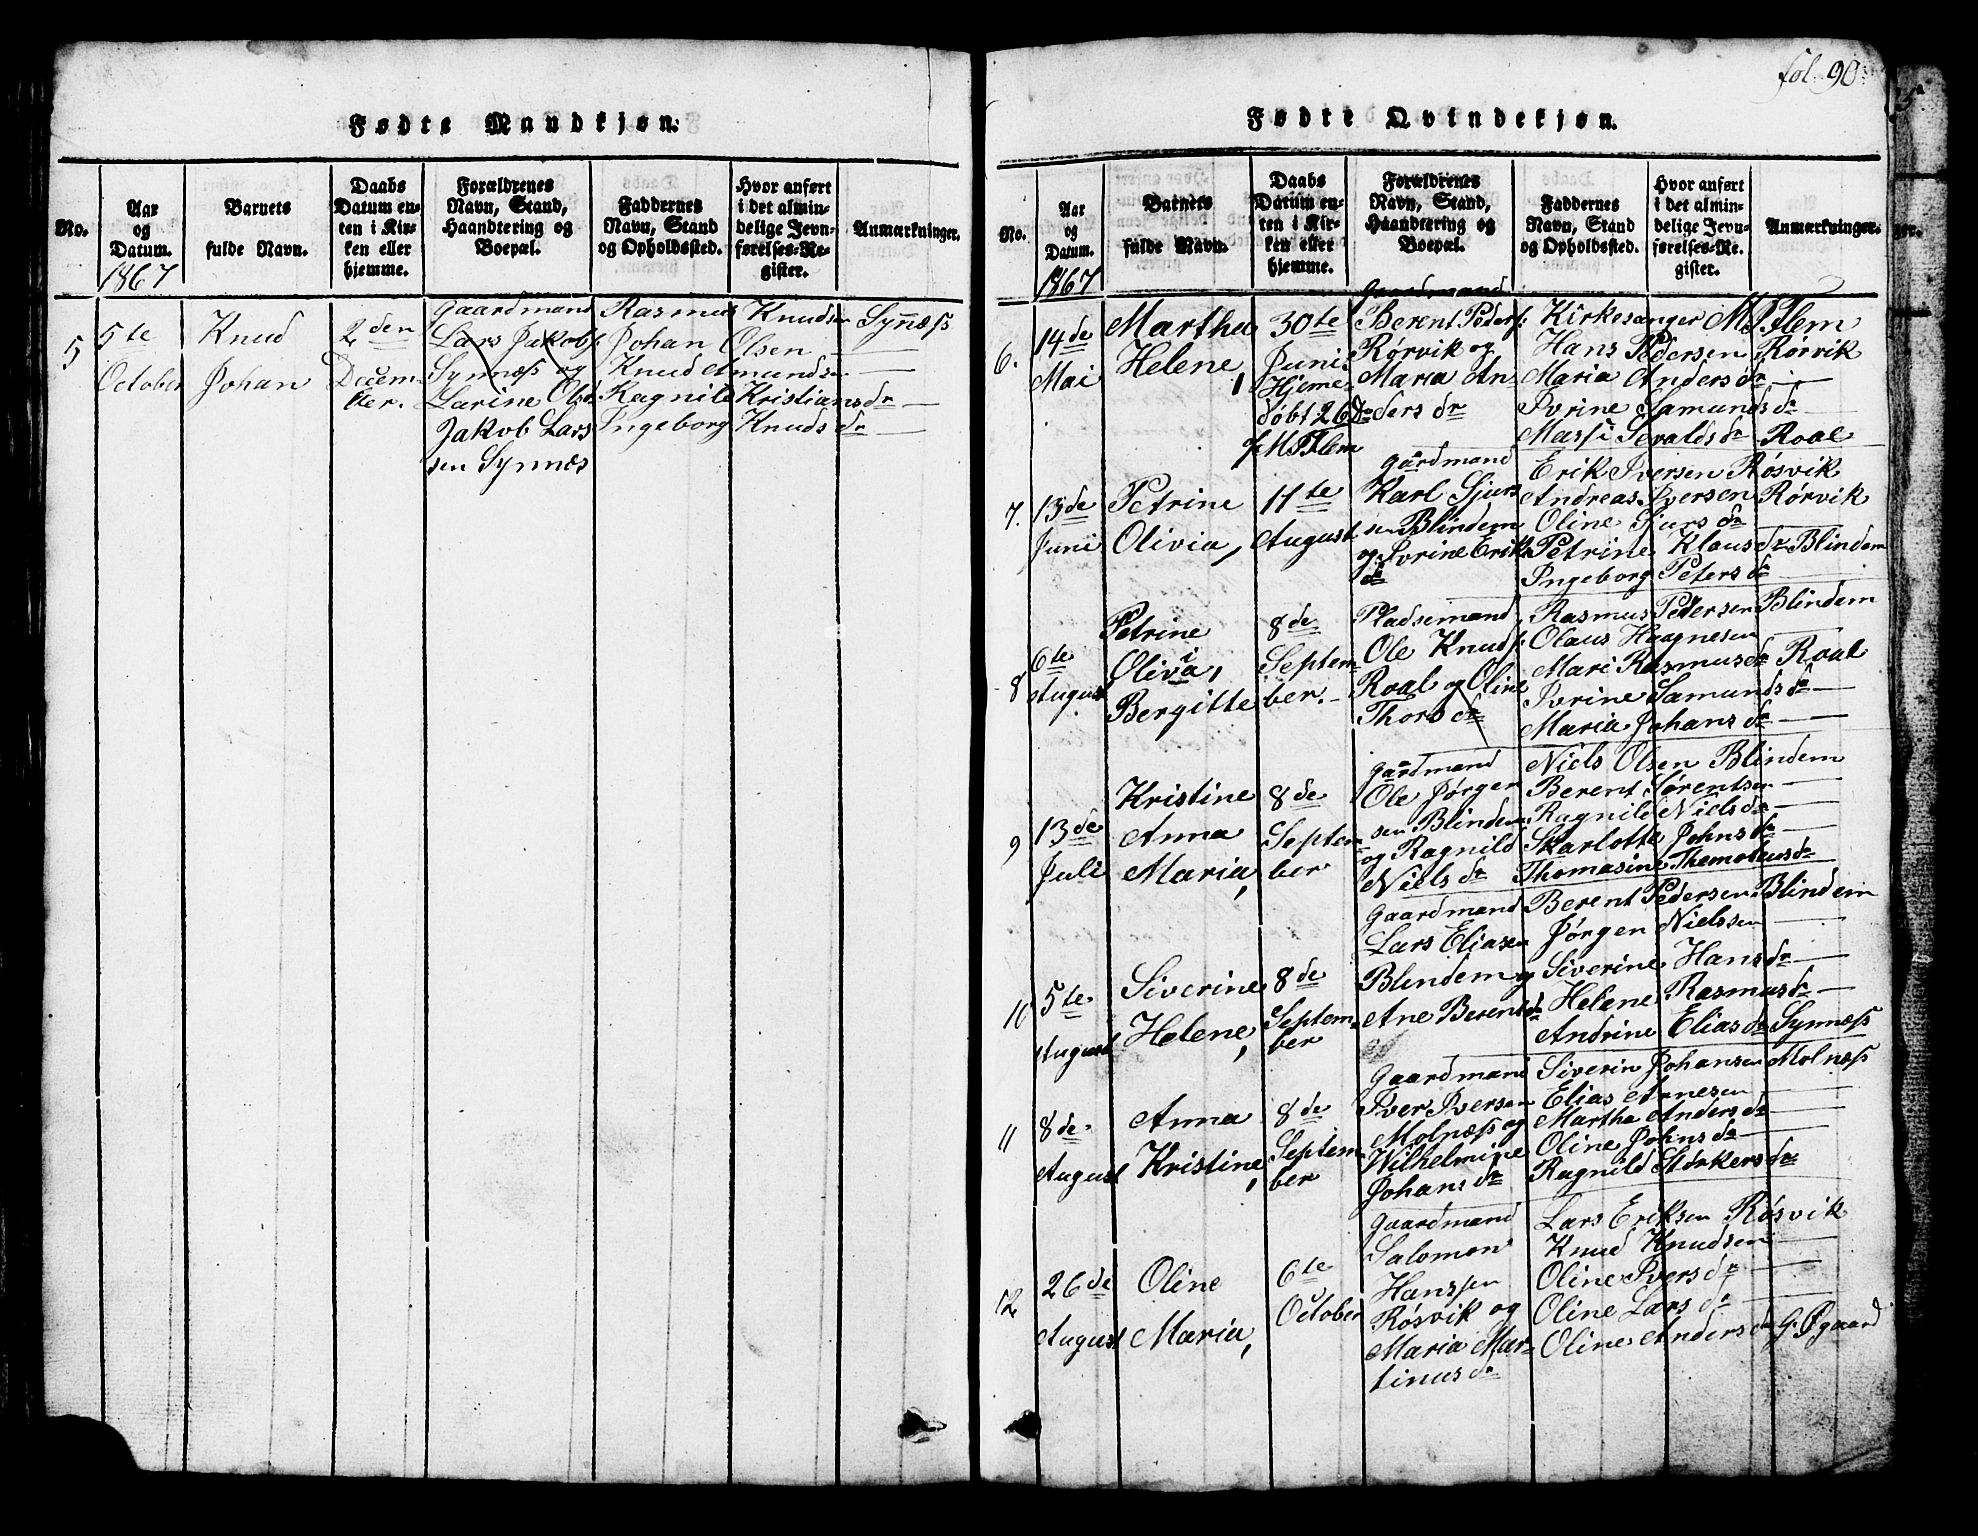 Fødte Mandkjøn.
No.
Aar
og
Datum.
1867
Barnets
fulde Navn.
Daabs
Datum en-
ten i Kir-
ken eller
hjemme.
Forældrenes
Navn, Stand,
Haandtering og
Boepæl.
Faddernes
Navn, Stand
og Opholdssted.
Hvor anført
i det almin-
delige Jevn-
førelses-Re-
gister.
Anmærkninger.
5
5te
October
Knud
Johan
2den
Decem-
ber.
Gaardmand
Lars Jakobs
Synnæss og
Larine Olsdr
Jakob Lars
sen Synnæs
Rasmus Knudsen Synæss
Johan Olsen —
Knud Amundsen —
Ragnild Kristiansdr —
Ingeborg Knudsdr —
fol. 90.
Fødte Qvindekjøn.
No.
Aar
og
Datum.
1867
Barnets
fulde Navn.
Daabs
Datum en-
ten i Kir-
ken eller
hjemme.
Forældrenes
Navn, Stand,
Haandtering og
Boepæl.
Faddernes
Navn, Stand
og Opholdssted.
Hvor anført
i det almin-
delige Jevn-
førelses-Re-
gister.
Anmærkninger.
6.
14de
Mai
Martha
Helene,
30te
Juni
Hjeme
døbt 26de
af MFlem
Gaardmand
Berent Peders:
Rørvik og
Maria An
dersdr
Kirkesanger M. Flem
Hans Pedersen Rørvik
Maria Andersdr —
Ivrine Samundsdr —
Massi Sevaldsdr Roal
7.
13de
Juni
Petrine
Olivia,
11te
August
Gaardmand
Karl Sjurs
sen Blindem
og Ivrine Eriks
dr
Erik Iversen Røsvik
Andreas Iversen Rørvik
Oline Sjursdr —
Petrine Klausdr Blindem
Ingeborg Petersdr —
8
6te
August
Petrine
Olivia,
Bergitte
8de
Septem
ber.
Pladsemand
Ole Knuds:
Roal og Oline
Thorsdr
Rasmus Pedersen Blindem
Olaus Haagnesen —
Mari Rasmusdr Roal
Ivrine Samundsdr —
Maria Johansdr —
9
13de
Juli
Kristine
Anna
Maria,
8de
Septem
ber
Gaardmand
Ole Jørgen
sen Blindem
og Ragnild
Nielsdr
Niels Olsen Blindem
Berent Sørentsen —
Ragnild Nielsdr —
Skarlotte Johnsdr —
Thomasine
Berent Pedersen Blindem
10
5te
August
Siverine
Helene,
8de
Septem
ber
Gaardmand
Lars Eliasen
Blindem og
Ane Berentsdr
Jørgen Nielssen —
Siverine Hansdr —
Helene Rasmusdr —
Andrine Eliasdr Synnæss
11
8de
August
Anna
Kristine,
8de
Septem
ber
Gaardmand
Iver Iversen
Molnæss og
Wilhelmine
Johansdr
Siverin Johansen Molnæss
Elias Arnesen —
Martha Andersdr —
Oline Johnsdr —
Ragnild Størkersdr
12
26de
August
Oline
Maria,
6te
October
Gaardmand
Salomon
Hanssen
Røsvik og
Maria Mar-
tinusdr
Lars Eriksen Røsvik
Knud Knudsen —
Oline Iversdr —
Oline Larsdr —
Oline Andersdr G. Øgaard